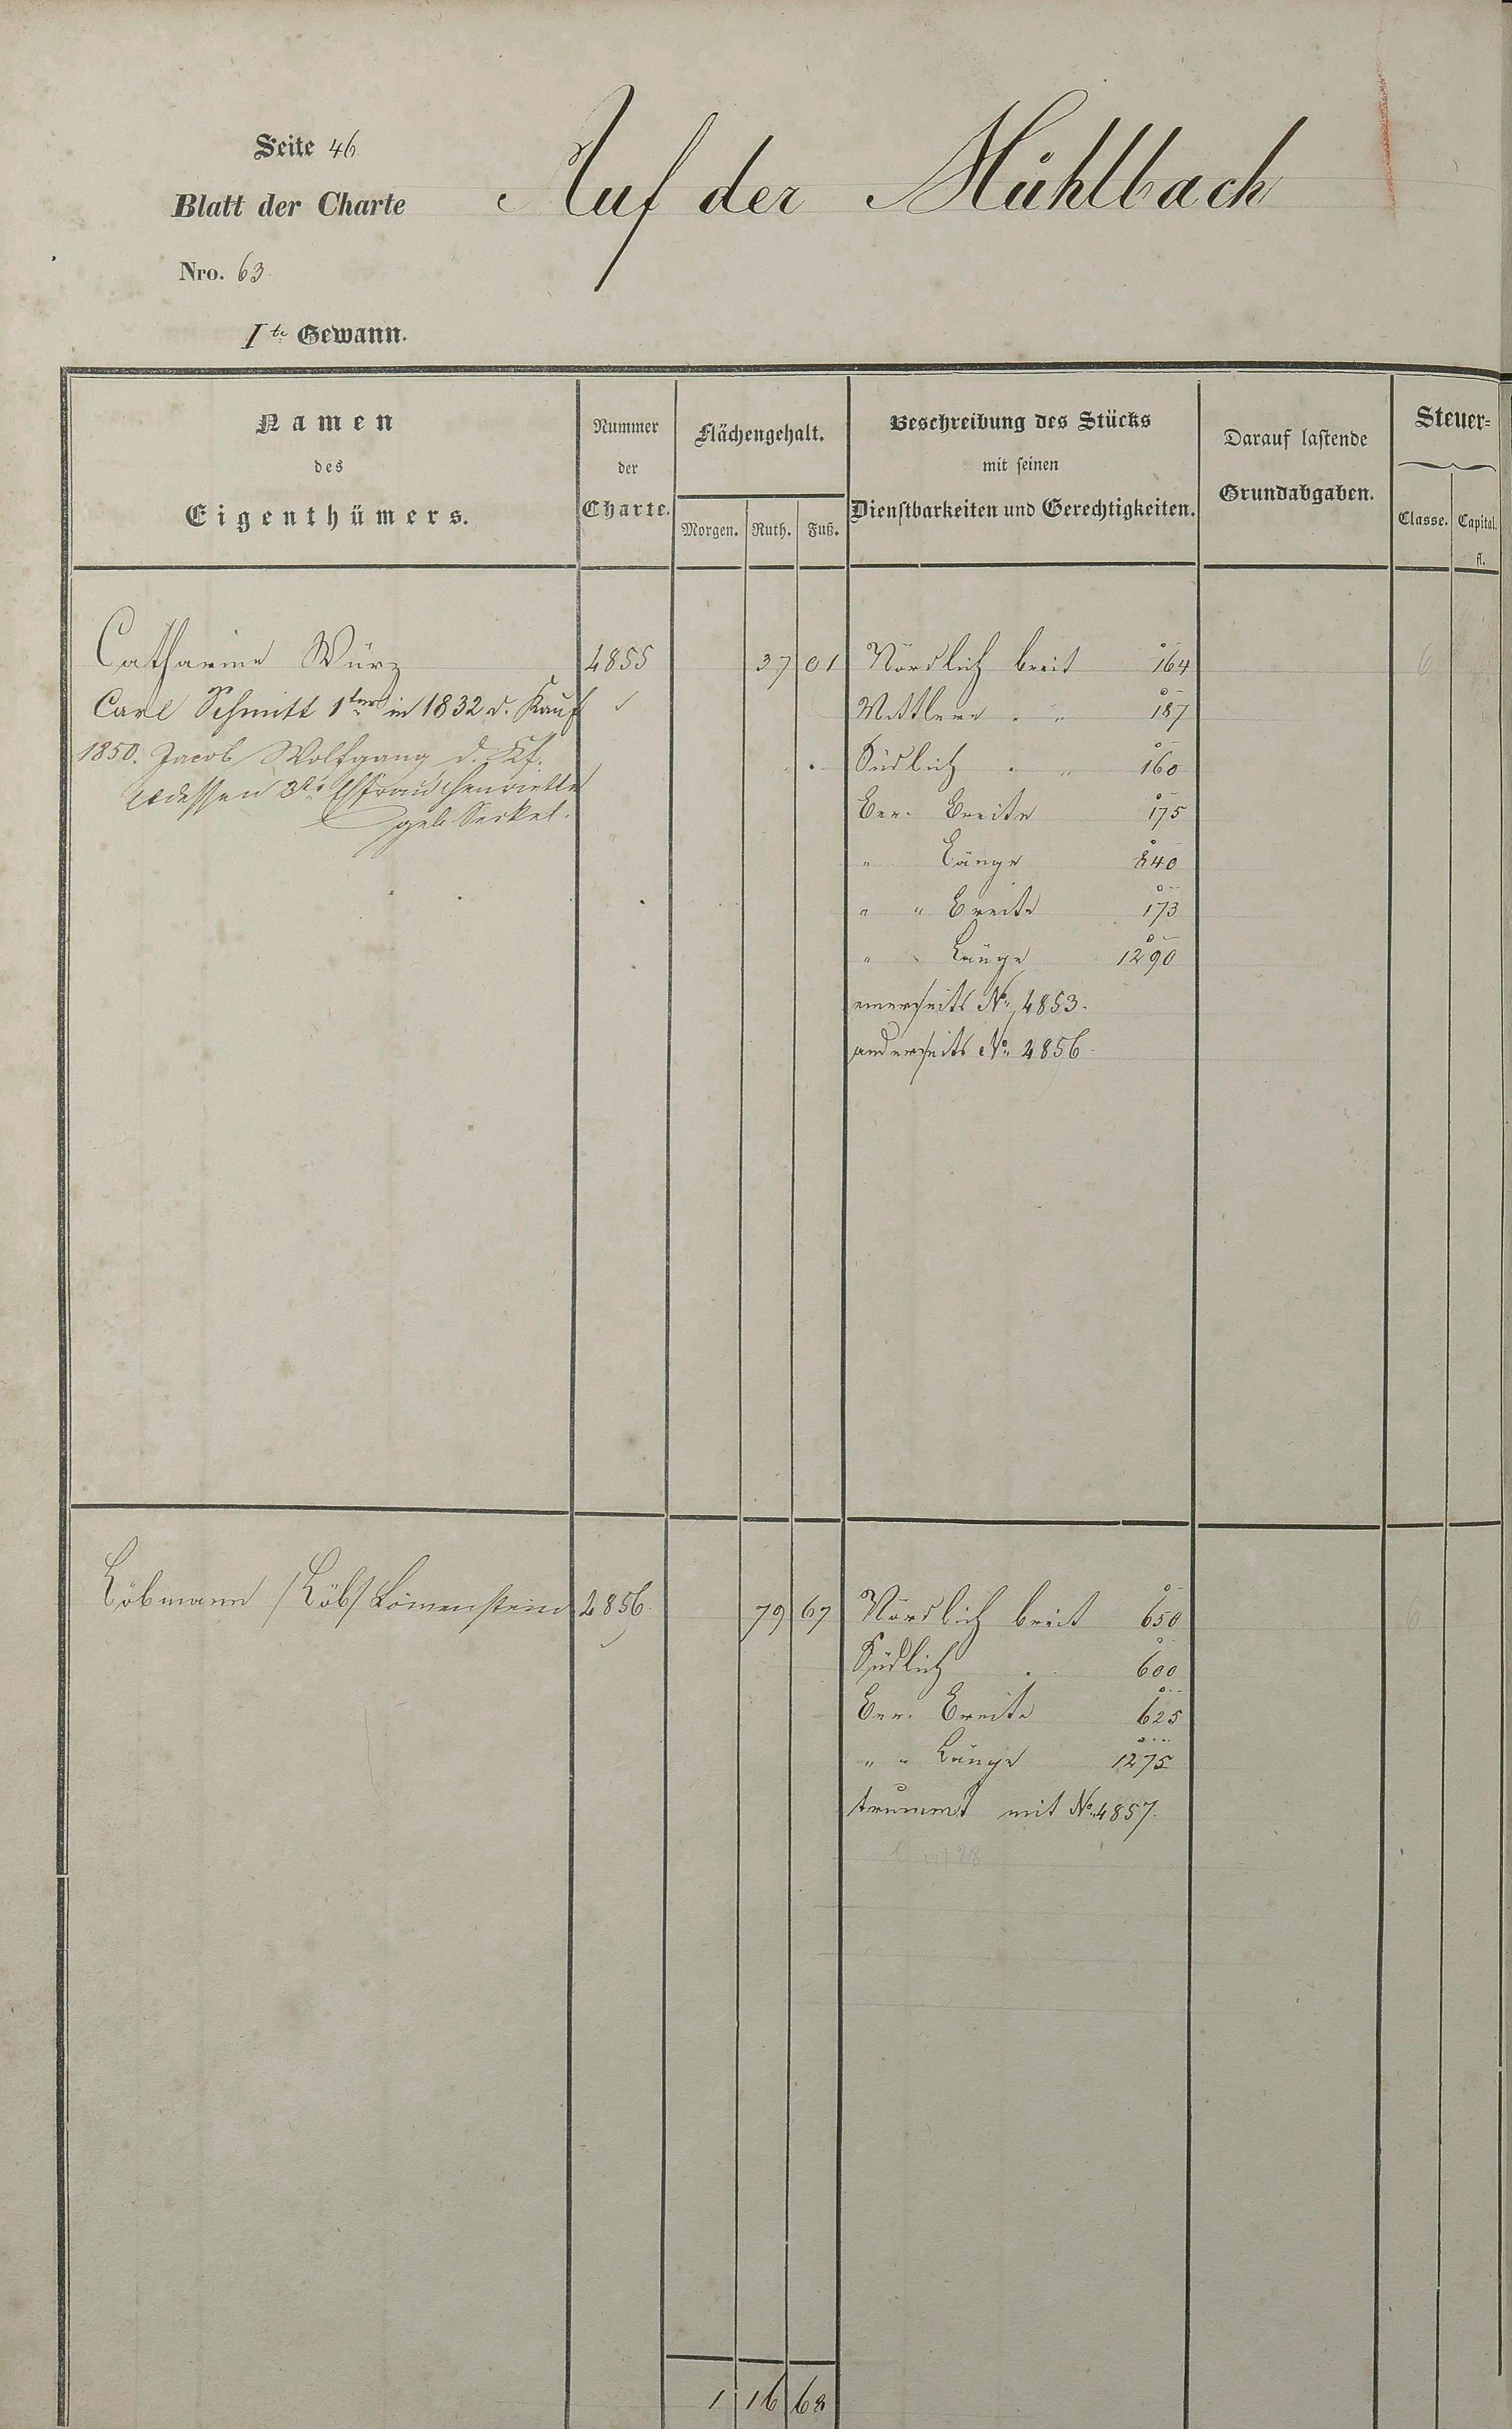 Seite 46
Auf der Mühlbach
Blatt der Charte
Nro. 63.
Ite Gewann.
Namen
des
Eigenthümers.
Nummer
der
Charte.
Flächengehalt.
Morgen. Ruth. Fuß.
Beschreibung des Stücks
mit seinen
Dienstbarkeiten und Gerechtigkeiten.
Darauf lastende
Grundabgaben.
Steuer=
Classe. Capital.
fl.
Catharine Würz 4855 37 01 Nördlich breit 164 6
Carl Schmitt 1ter in 1832 d. Kauf Mittlere " " 187
1850. Jacob Wolfgang d. Kf. Südlich " " 160
dessen 2te Ehfrau Henriette Ber. Breite 175
geb. Seckel.
" Länge 840
" " Breite 173
" " Länge 1290
einerseits No. 4853.
anderseits No. 4856.
Löbmann /Löb/ Löwenstein 4856. 79 67 Nördlich breit 650 6
Südlich " 600
Ber. Breite 625
" " Länge 1275
trummt mit No. 4857.
1 16 68